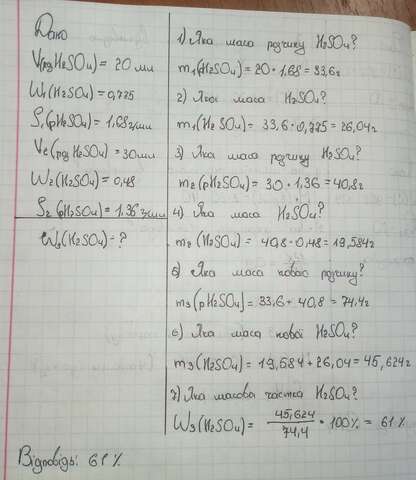 Дано
V(рзH₂SO₄) = 20 мл
W₁(H₂SO₄) = 0,775
ρ₁(рH₂SO₄) = 1,68 г/мл
V₂(рзH₂SO₄) = 30мл
W₂(H₂SO₄) = 0,48
ρ₂(рH₂SO₄) = 1,36 г/мл
W₃(H₂SO₄) - ?
1) Яка маса розчину H₂SO₄?
m₁(H₂SO₄) = 20 · 1,68 = 33,6г
2) Яка маса H₂SO₄?
m₁(H₂SO₄) = 33,6 · 0,775 = 26,04г
3) Яка маса розчину H₂SO₄?
m₂(рH₂SO₄) = 30 · 1,36 = 40,8г
4) Яка маса H₂SO₄?
m₂(H₂SO₄) = 40,8 · 0,48 = 19,584г
5) Яка маса нового розчину?
m₃(рH₂SO₄) = 33,6 + 40,8 = 74,4г
6) Яка маса нової H₂SO₄?
m₃(H₂SO₄) = 19,584 + 26,04 = 45,624г
7) Яка масова частка H₂SO₄?
W₃(H₂SO₄) = 45,624/74,4 · 100% = 61%
Відповідь: 61%